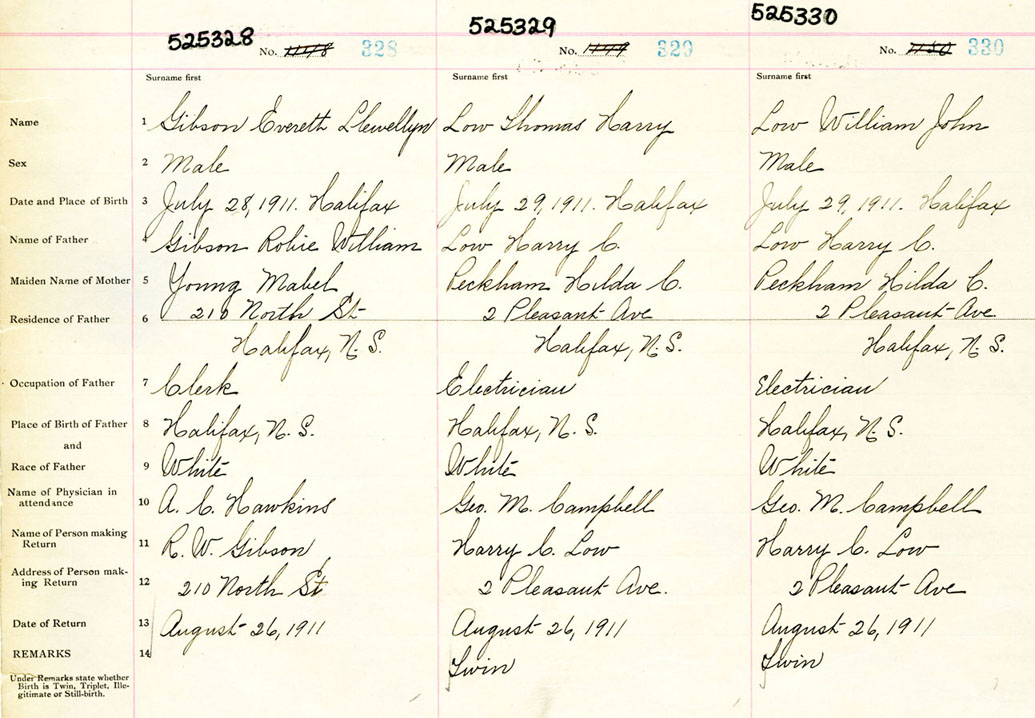 525328 525329 525330
No. 1148 328 No. 1149 329 No. 1150 330
Surname first Surname first Surname first
Name 1 Gibson Everett Llewellyn Low Thomas Harry Low William John
Sex 2 Male Male Male
Date and Place of Birth 3 July 28, 1911. Halifax July 29, 1911. Halifax July 29, 1911. Halifax
Name of Father 4 Gibson Robie William Low Harry C. Low Harry C.
Maiden Name of Mother 5 Young Mabel Peckham Hilda C. Peckham Hilda C.
Residence of Father 6 210 North St 2 Pleasant Ave 2 Pleasant Ave
Halifax, N.S. Halifax, N.S. Halifax, N.S.
Occupation of Father 7 Clerk Electrician Electrician
Place of Birth of Father 8 Halifax, N.S. Halifax, N.S. Halifax, N.S.
and
Race of Father 9 White White White
Name of Physician in
attendance 10 A. C. Hawkins Geo. M. Campbell Geo. M. Campbell
Name of Person making
Return 11 R. W. Gibson Harry C. Low Harry C. Low
Address of Person mak-
ing Return 12 210 North St 2 Pleasant Ave. 2 Pleasant Ave
Date of Return 13 August 26, 1911 August 26, 1911 August 26, 1911
REMARKS 14 Twin Twin
Under Remarks state whether
Birth is Twin, Triplet, Ille-
gitimate or Still-birth.